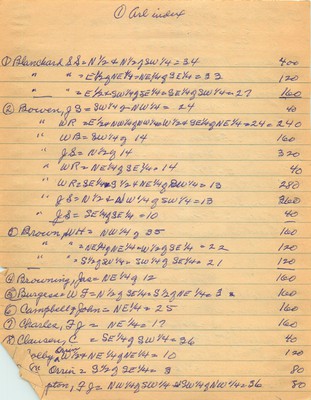 ① Arl index
① Blanchard S.S = N½ & N½ of SW¼ = 34 400
" " = E½ of NE¼ = NE¼ of SE¼ = 33 120
" " = E½ = SW¼ of SE¼ = SE¼ of SW¼ = 27 160
② Bowen, J S = SW¼ of NW¼ = 24 40
" WR = E½ = NW¼ of NW¼ = W½ = SE¼ of NE¼ = 24 = 240
" WB = SW¼ of 14 160
" J.S = N½ of 14 320
" WR = NE¼ of SE¼ = 14 40
" WR = SE¼ = S½ = NE¼ of SW¼ = 13 280
" J S = N½ & NW¼ of SW¼ = 13 360
" J S = SE¼ of SE¼ = 10 40
③ Brown, WH = NW¼ of 35 160
" " = NE¼ of NE¼ = W½ of SE¼ = 22 120
" " = S½ of SW¼ = SW¼ of SE¼ = 21 120
④ Browning, Jas = NE¼ of 12 160
⑤ Burgess W F = N½ of SE¼ = S½ of NE¼ = 3 160
⑥ Campbell, John = NE¼ = 25 160
⑦ Charles, F J = NE¼ = 17 160
Clausen, C = SE¼ of SW¼ = 36 40
olby Orin W½ = NE¼ of NE¼ = 10 120
Orrin = S½ of SE¼ = 3 80
pton, F J = NW¼ of SW¼ = SW¼ of NW¼ = 36 80